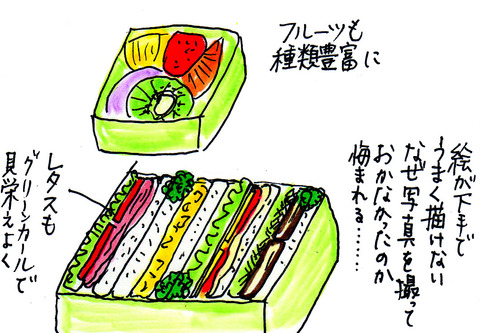 フルーツも
種類豊富に
絵が下手で
うまく描けない
なぜ写真を撮って
おかなかったのか
悔まれる……
レタスも
グリーンカールで
見栄えよく